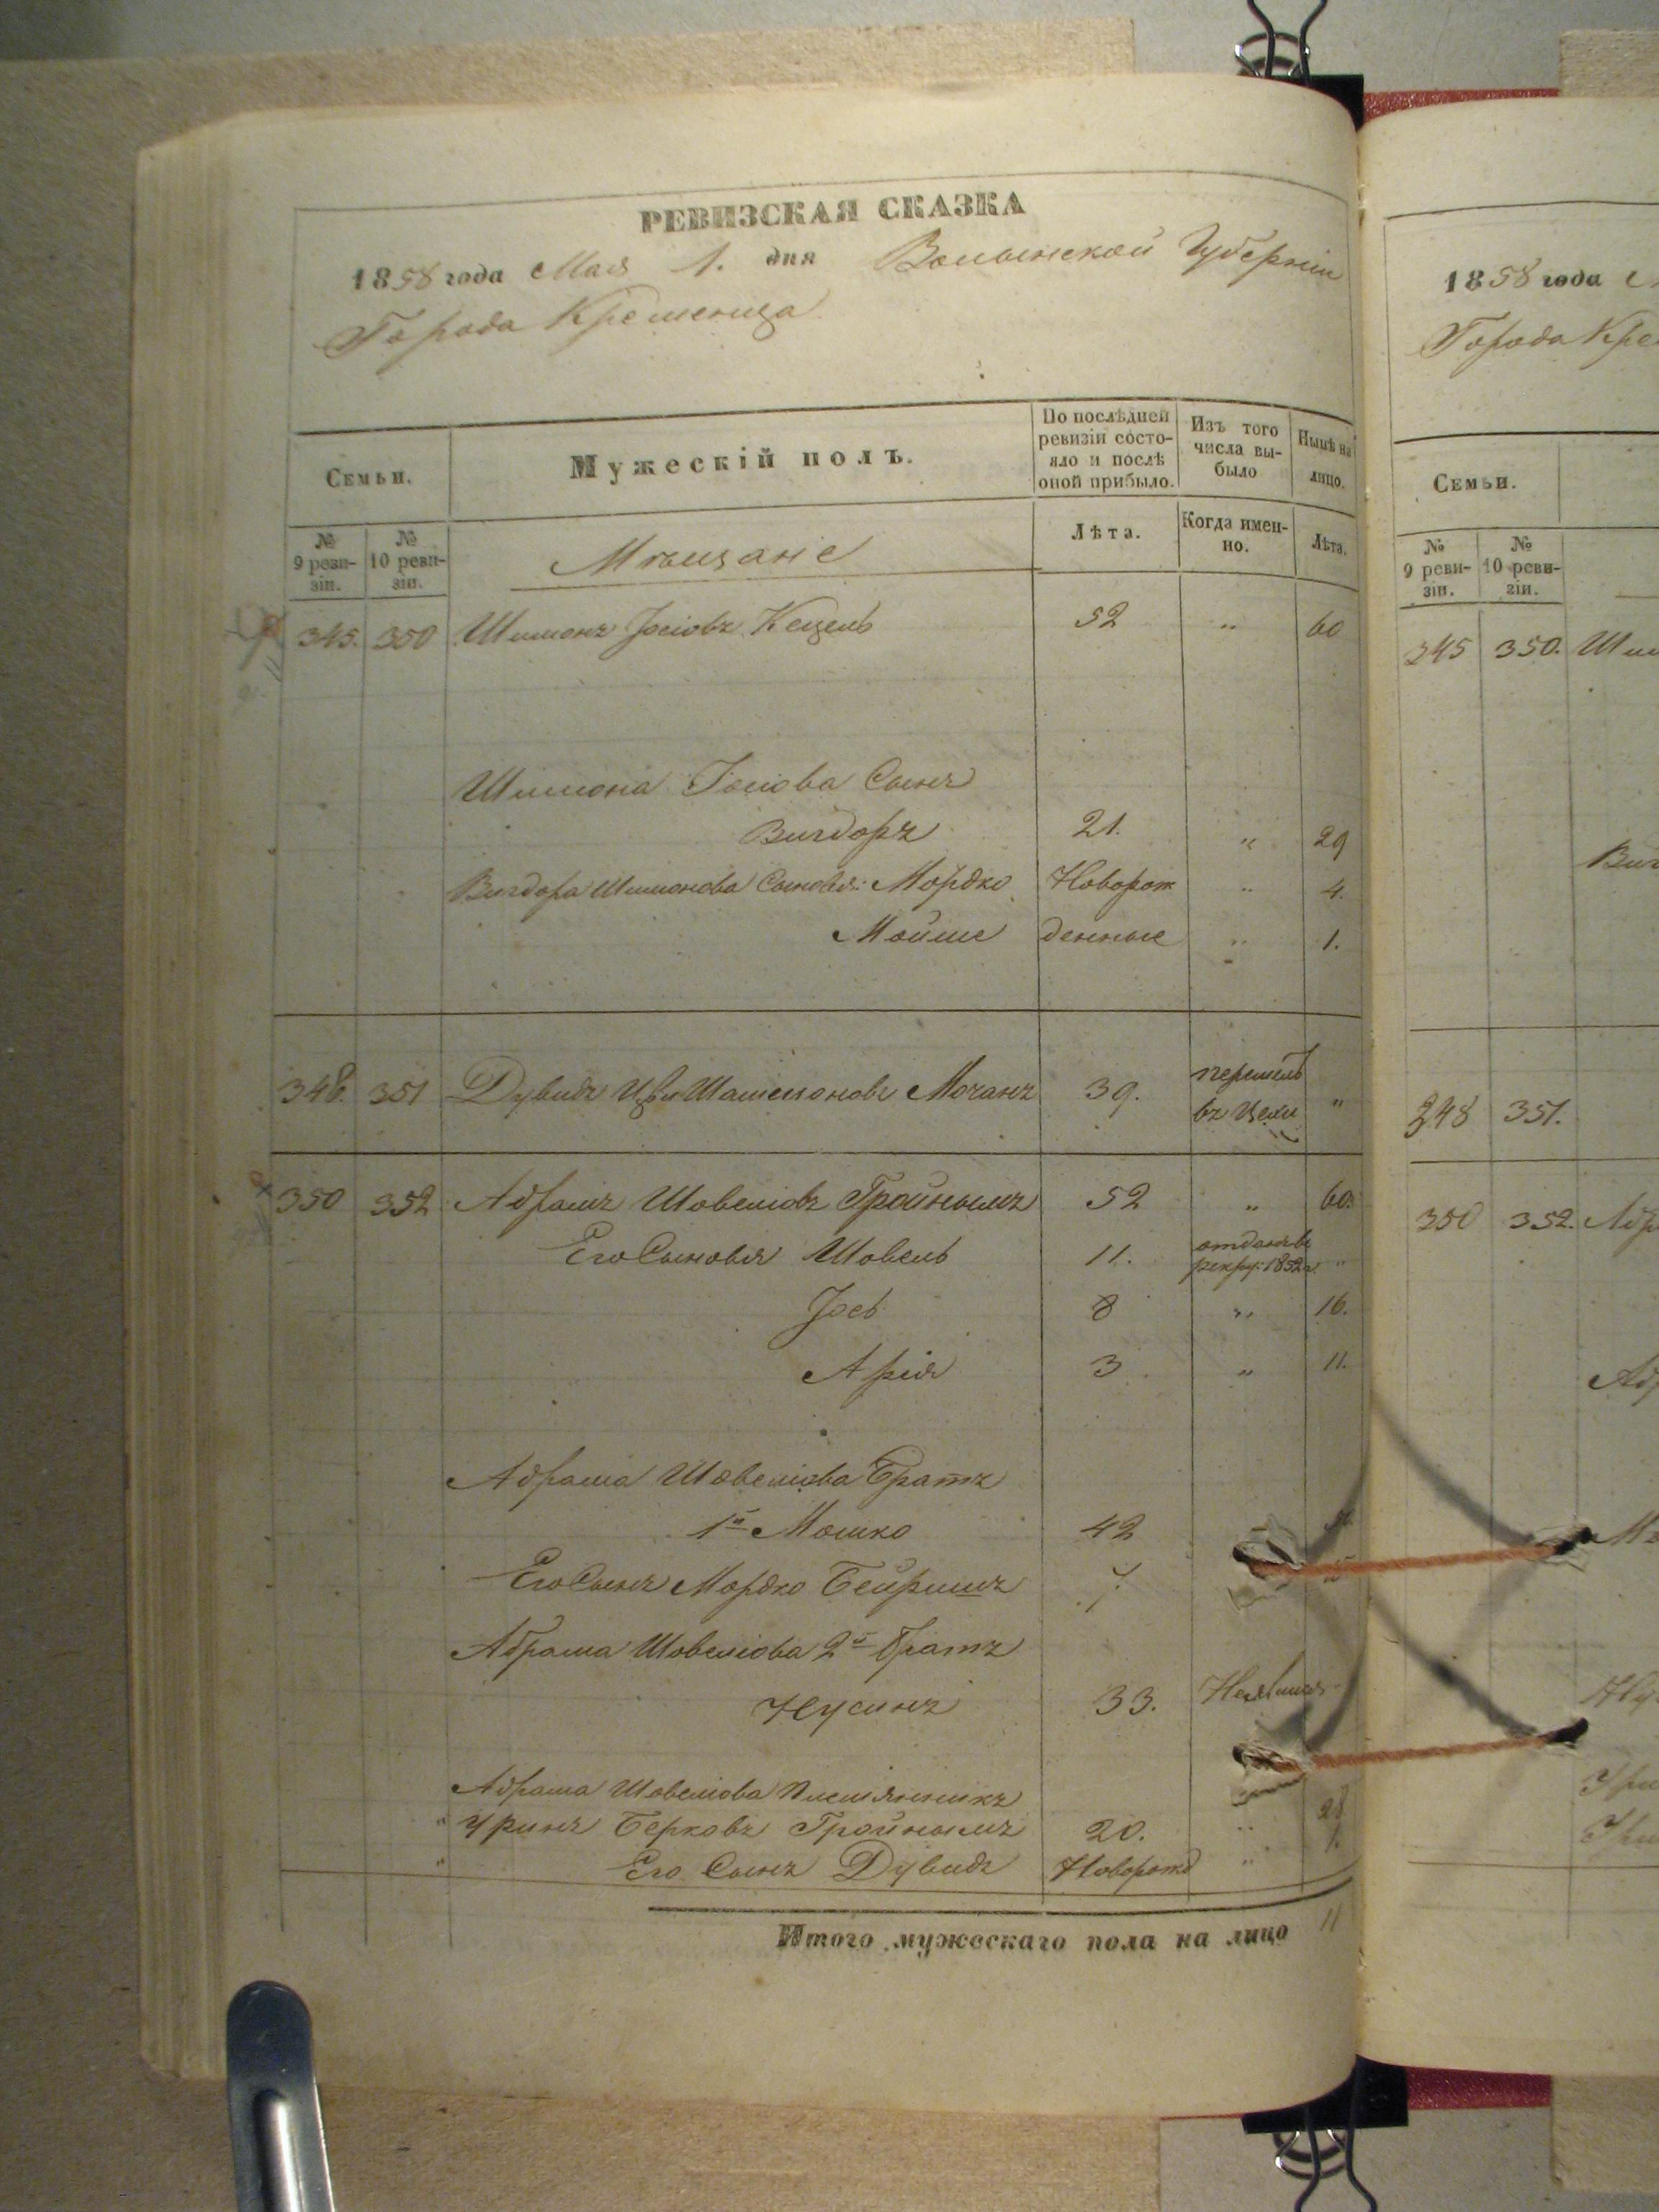 РЕВИЗСКАЯ СКАЗКА
1858 года Мая 1. дня Волынской Губерніи
Города Кременца
Семьи.
Мужескій полъ.
По послѣдней ревизіи состояло и послѣ оной прибыло.
Изъ того числа выбыло
Нынѣ на лицо.
№ 9 ревизіи.
№ 10 ревизіи.
Мѣщане
Лѣта.
Когда именно.
Лѣта.
345. 350 Шимонъ Іосіовъ Кецель 52 " 60
Шимона Іосіова Сынъ
Вигдоръ 21. " 29
Вигдора Шимонова Сыновья: Мордко Новорож " 4.
Мойше денные " 1.
348. 351 Дувидъ Цви Мочанъ 39. перешелъ "
въ Цехи
350 352 Абрамъ Шовеліовъ Гройнымъ 52 " 60.
Его Сыновья Шовель 11. отданъ въ
рекру: 1852 г. "
Іось 8 " 16.
Арія 3 " 11.
Абрама Шовеліова Братъ
1й Мошко 42
Его Сынъ Мордко Бейришъ 7.
Абрама Шовеліова 2й братъ
Нусинъ 33.
Абрама Шовеліова Племянникъ
" Уринъ Берковъ Гройнымъ 20. " 28
" Его Сынъ Дувидъ Новорожд " 1.
Итого мужескаго пола на лицо 11
1858 года
Города Кре
Семьи.
№ 9 ревизіи.
№ 10 ревизіи.
345 350. Шим
348 351.
350 352. Абр